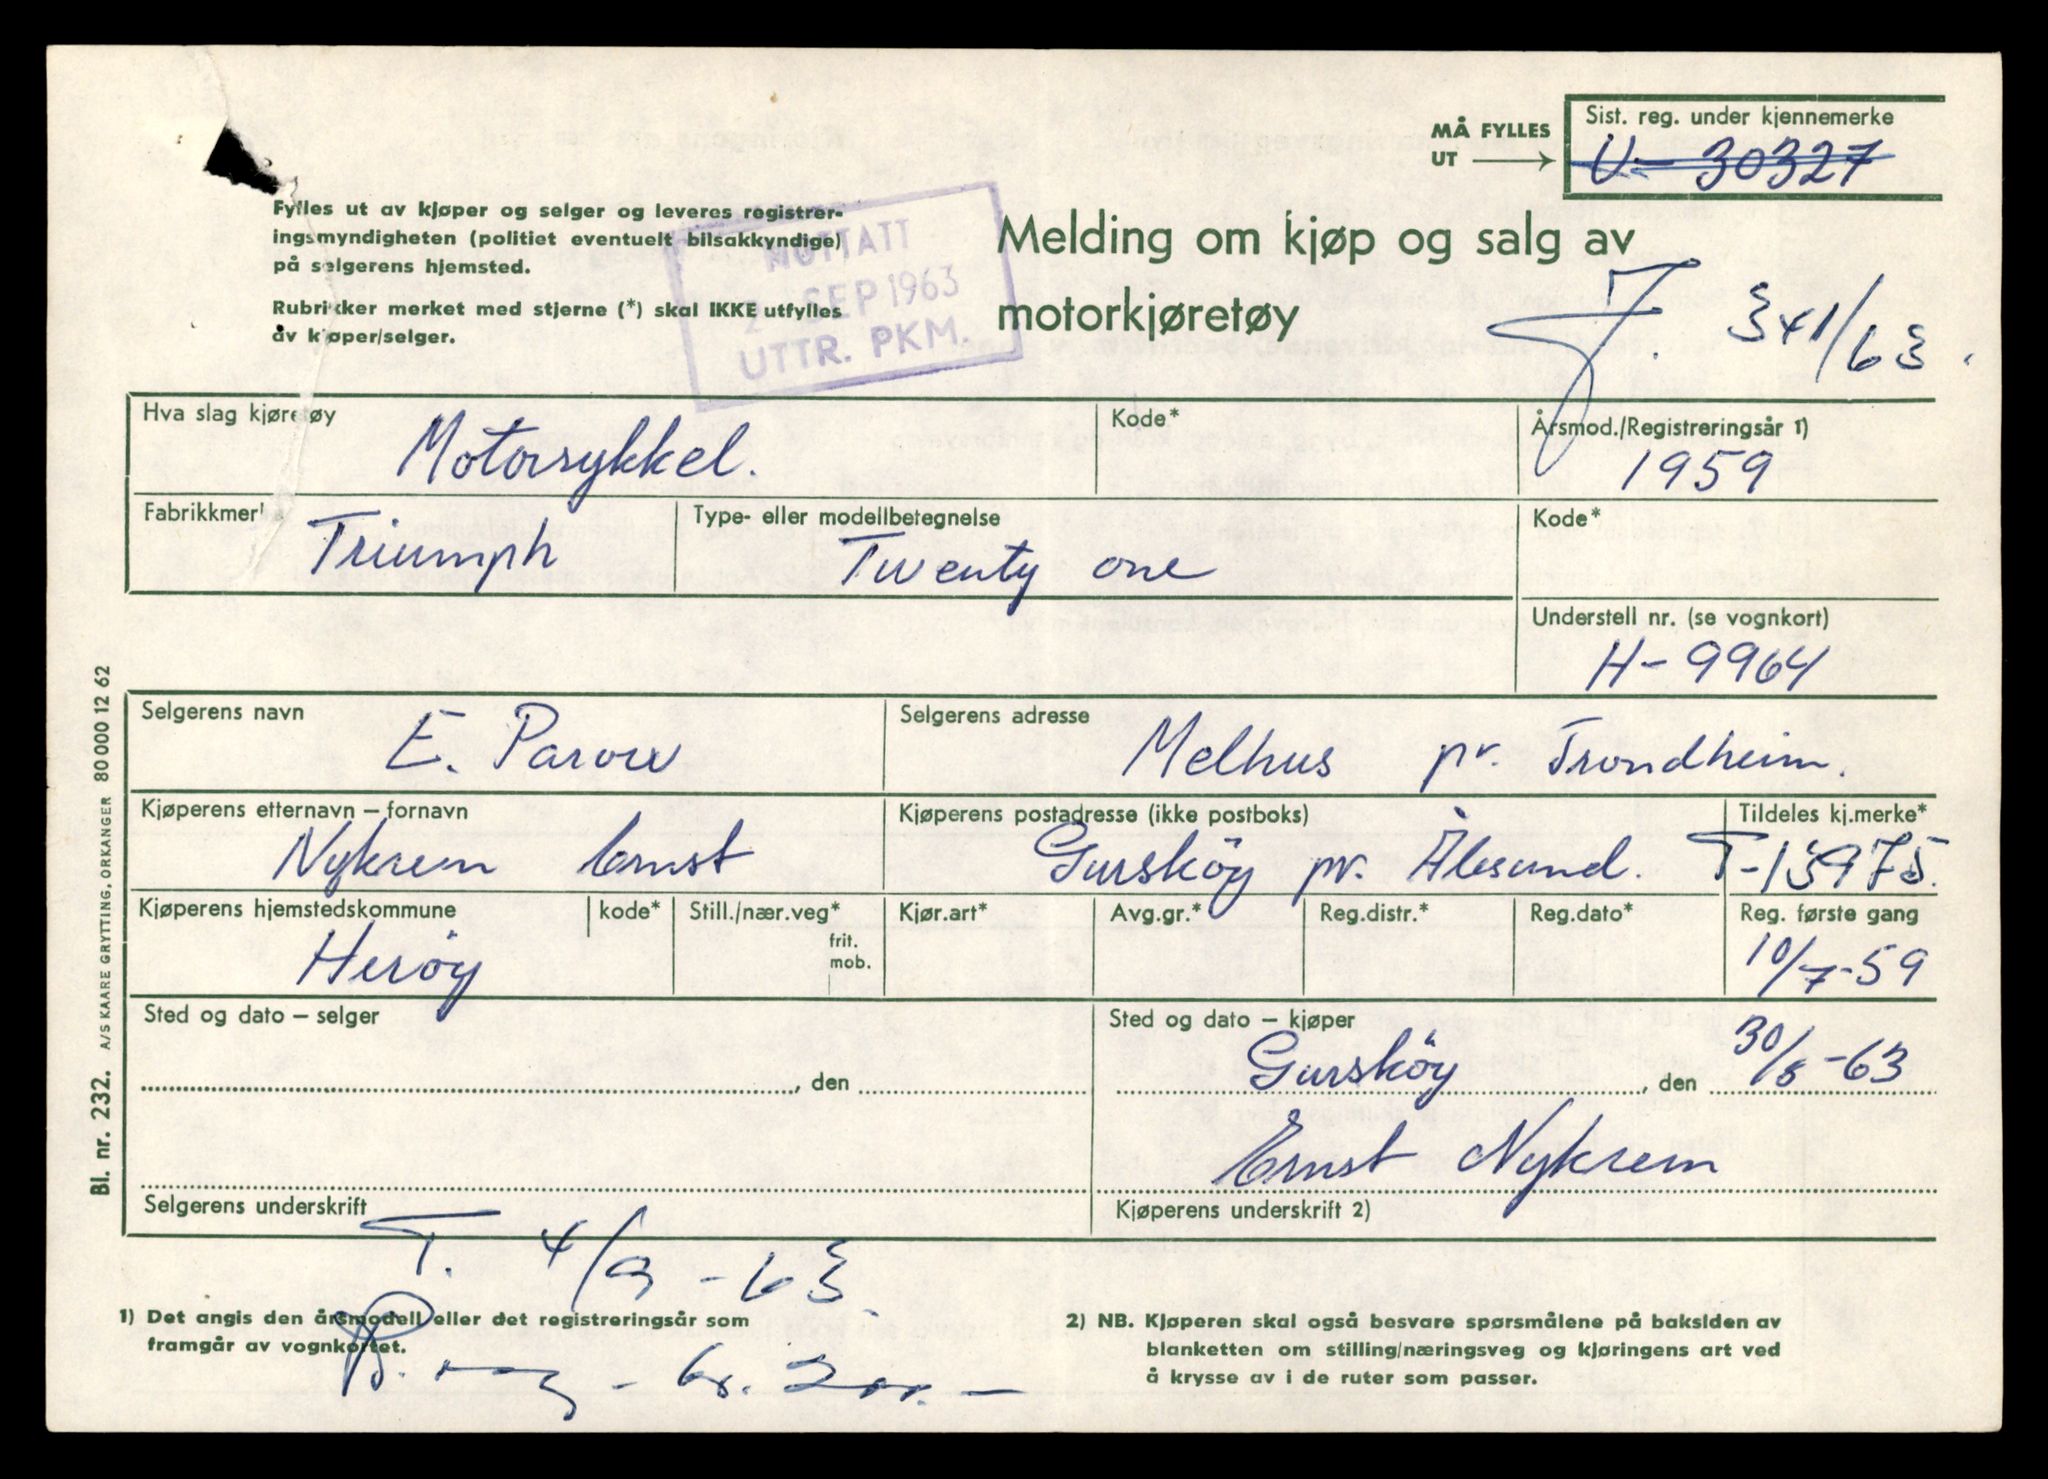 MÅ FYLLES
UT
Sist. reg. under kjennemerke
U- 30327
Fylles ut av kjøper og selger og leveres registrer-
ingsmyndigheten (politiet eventuelt bilsakkyndige)
på selgerens hjemsted.
Rubrikker merket med stjerne (*) skal IKKE utfylles
av kjøper/selger.
MOTTATT
2 SEP 1963
UTTR. PKM.
Melding om kjøp og salg av
motorkjøretøy
J. 341/63.
Hva slag kjøretøy
Motorsykkel.
Kode*
Årsmod./Registreringsår 1)
1959
Fabrikkmerke
Triumph
Type- eller modellbetegnelse
Twenty one
Kode*
Understell nr. (se vognkort)
H-9964
Selgerens navn
E. Parow
Selgerens adresse
Melhus pr. Trondheim.
Kjøperens etternavn – fornavn
Nykrem Ernst
Kjøperens postadresse (ikke postboks)
Gursköy pr. Ålesund.
Tildeles kj.merke*
T-13975.
Kjøperens hjemstedskommune
Heröy
kode*
Still./nær.veg*
frit.
mob.
Kjør.art*
Avg.gr.*
Reg.distr.*
Reg.dato*
Reg. første gang
10/7-59
Sted og dato – selger
, den
Sted og dato – kjøper
Gursköy , den 30/8-63
Ernst Nykrem
Selgerens underskrift
Kjøperens underskrift 2)
T. 4/9-63.
1) Det angis den årsmodell eller det registreringsår som
framgår av vognkortet.
kr.
2) NB. Kjøperen skal også besvare spørsmålene på baksiden av
blanketten om stilling/næringsveg og kjøringens art ved
å krysse av i de ruter som passer.
Bl. nr. 232. A/S KAARE GRYTTING, ORKANGER 80 000 12 62